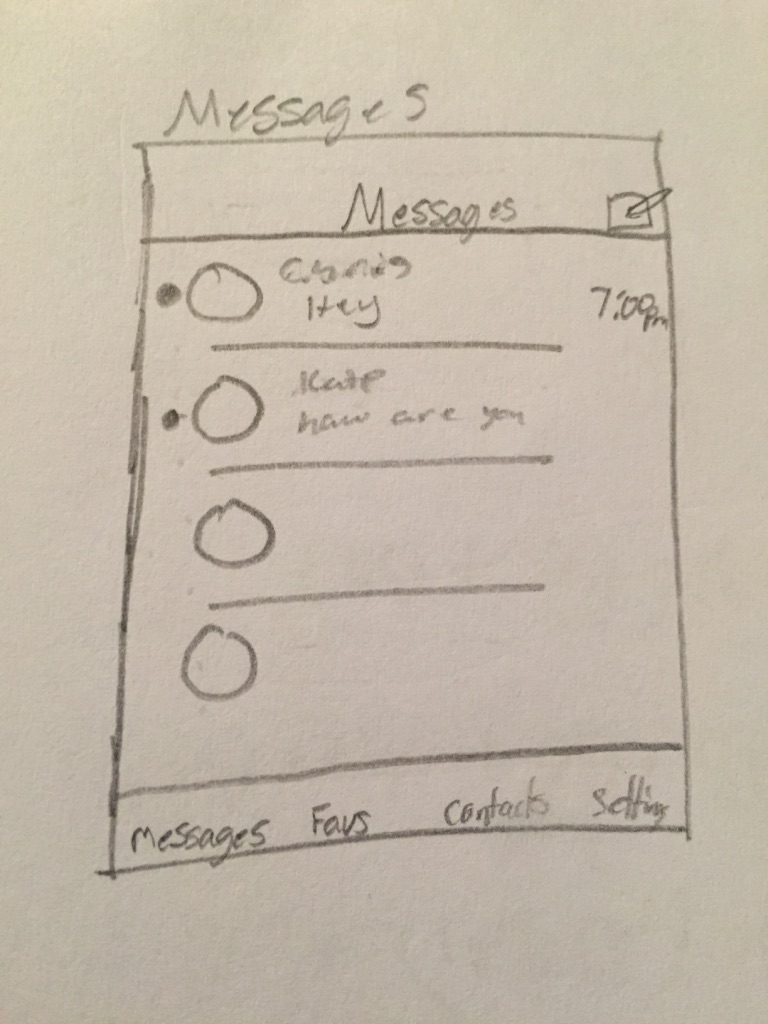 Messages
Messages
Hey
7:00pm
Kate
how are you
Messages Favs Contacts Setting